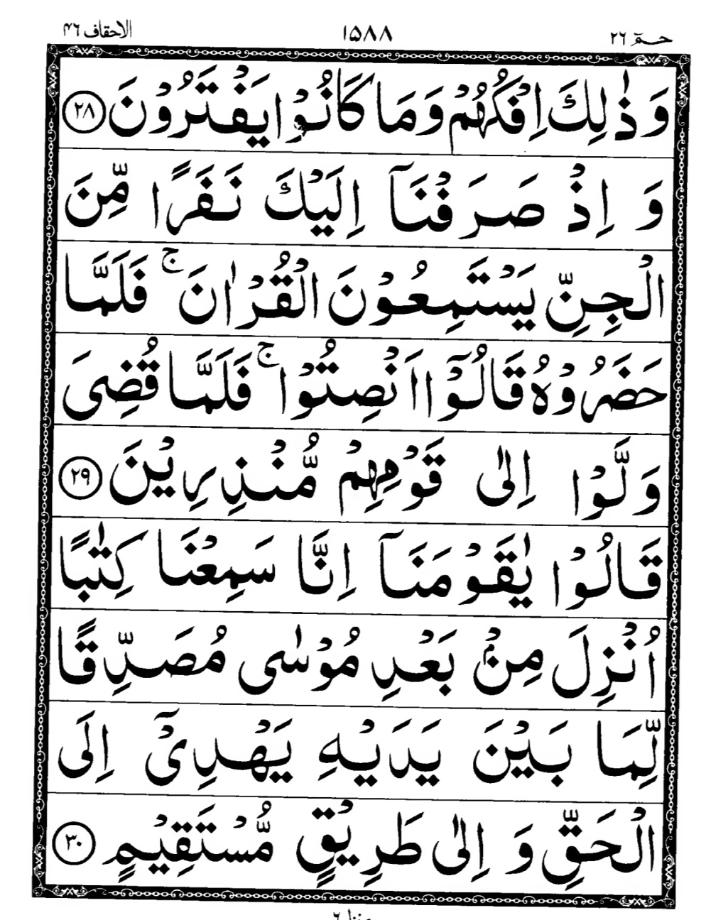 حٰمٓ ٢٦ ١٥٨٨ الاحقاف ٤٦
وَذٰلِكَ اِفْكُهُمْ وَمَا كَانُوْا يَفْتَرُوْنَ ٢٨
وَ اِذْ صَرَفْنَآ اِلَيْكَ نَفَرًا مِّنَ
الْجِنِّ يَسْتَمِعُوْنَ الْقُرْاٰنَ ۚ فَلَمَّا
حَضَرُوْهُ قَالُوْٓا اَنْصِتُوْا ۚ فَلَمَّا قُضِىَ
وَلَّوْا اِلٰى قَوْمِهِمْ مُّنْذِرِيْنَ ٢٩
قَالُوْا يٰقَوْمَنَآ اِنَّا سَمِعْنَا كِتٰبًا
اُنْزِلَ مِنْۢ بَعْدِ مُوْسٰى مُصَدِّقًا
لِّمَا بَيْنَ يَدَيْهِ يَهْدِىْٓ اِلَى
الْحَقِّ وَ اِلٰى طَرِيْقٍ مُّسْتَقِيْمٍ ٣٠
منزل ٦